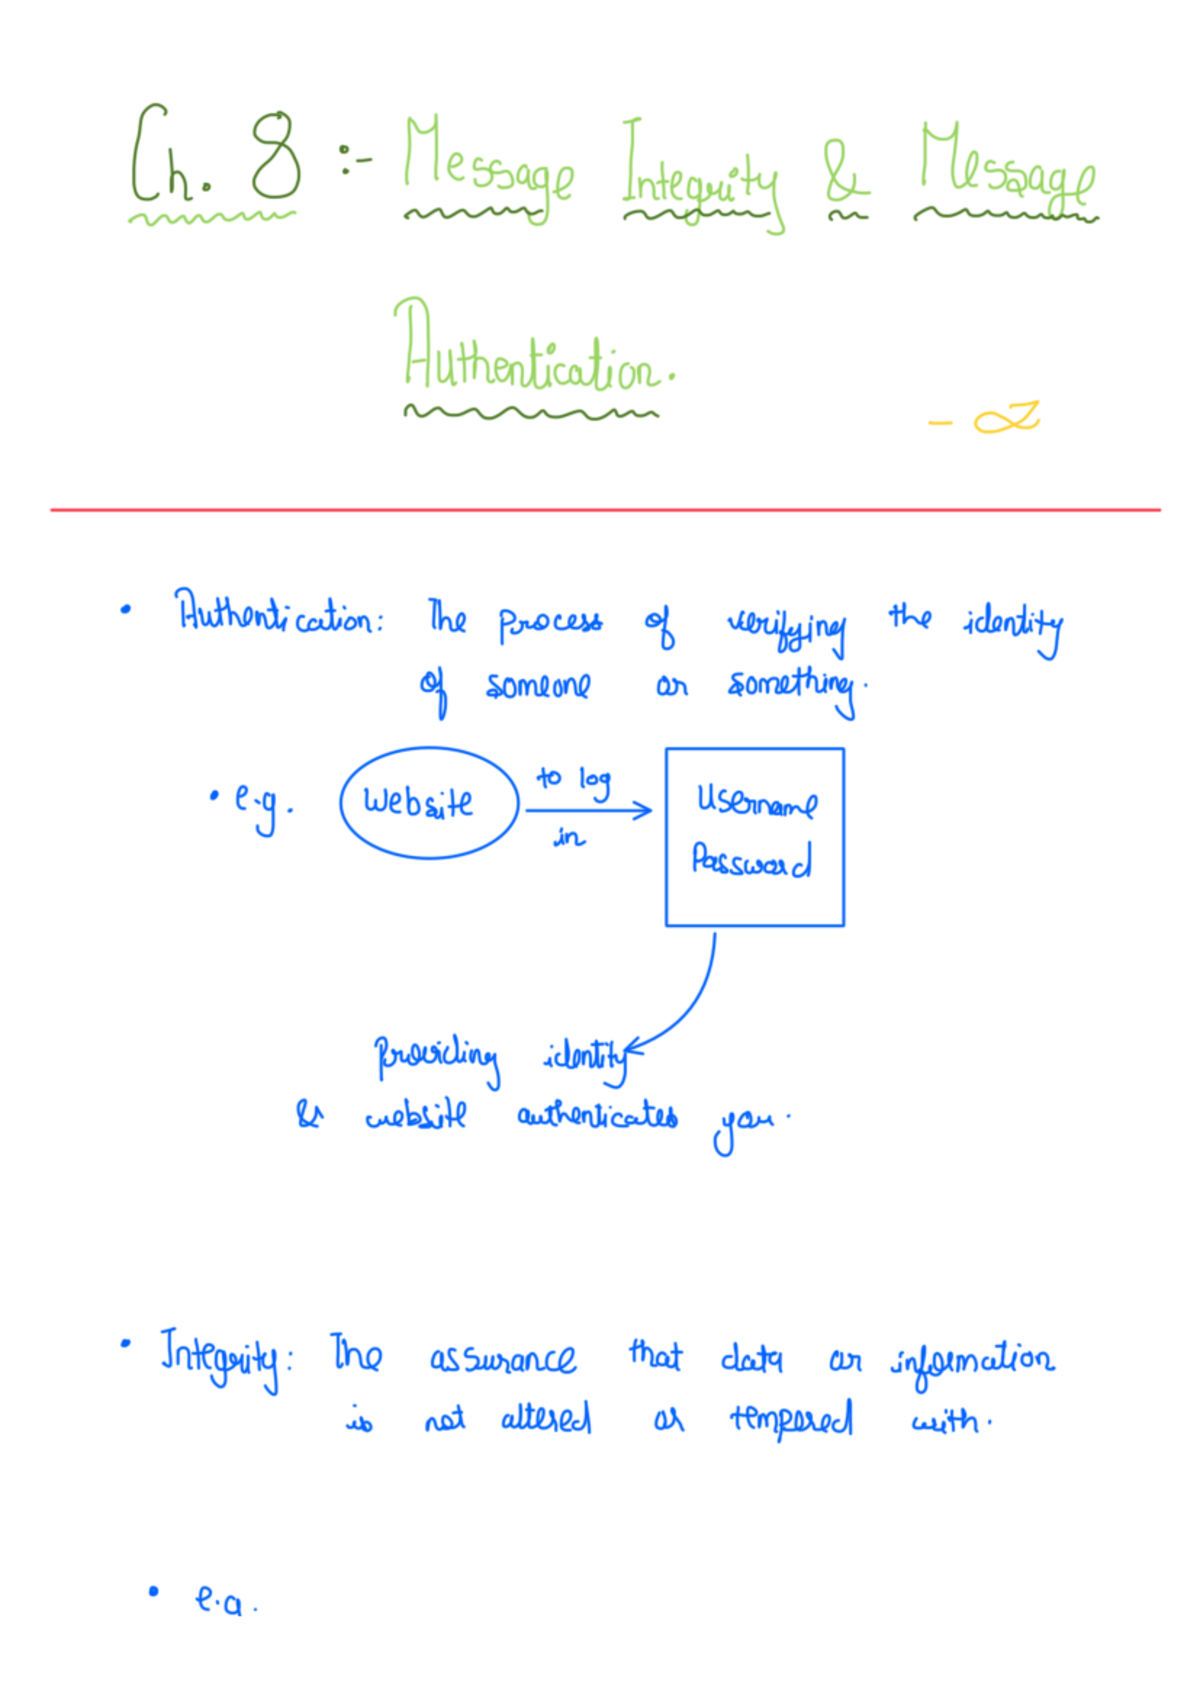 Ch. 8 :- Message Integrity & Message
Authentication.
• Authentication: The process of verifying the identity
of someone or something.
• e.g. Website to log in Username
Password
Providing identity
& website authenticates you.
• Integrity: The assurance that data or information
is not altered or tempered with.
• e.g.